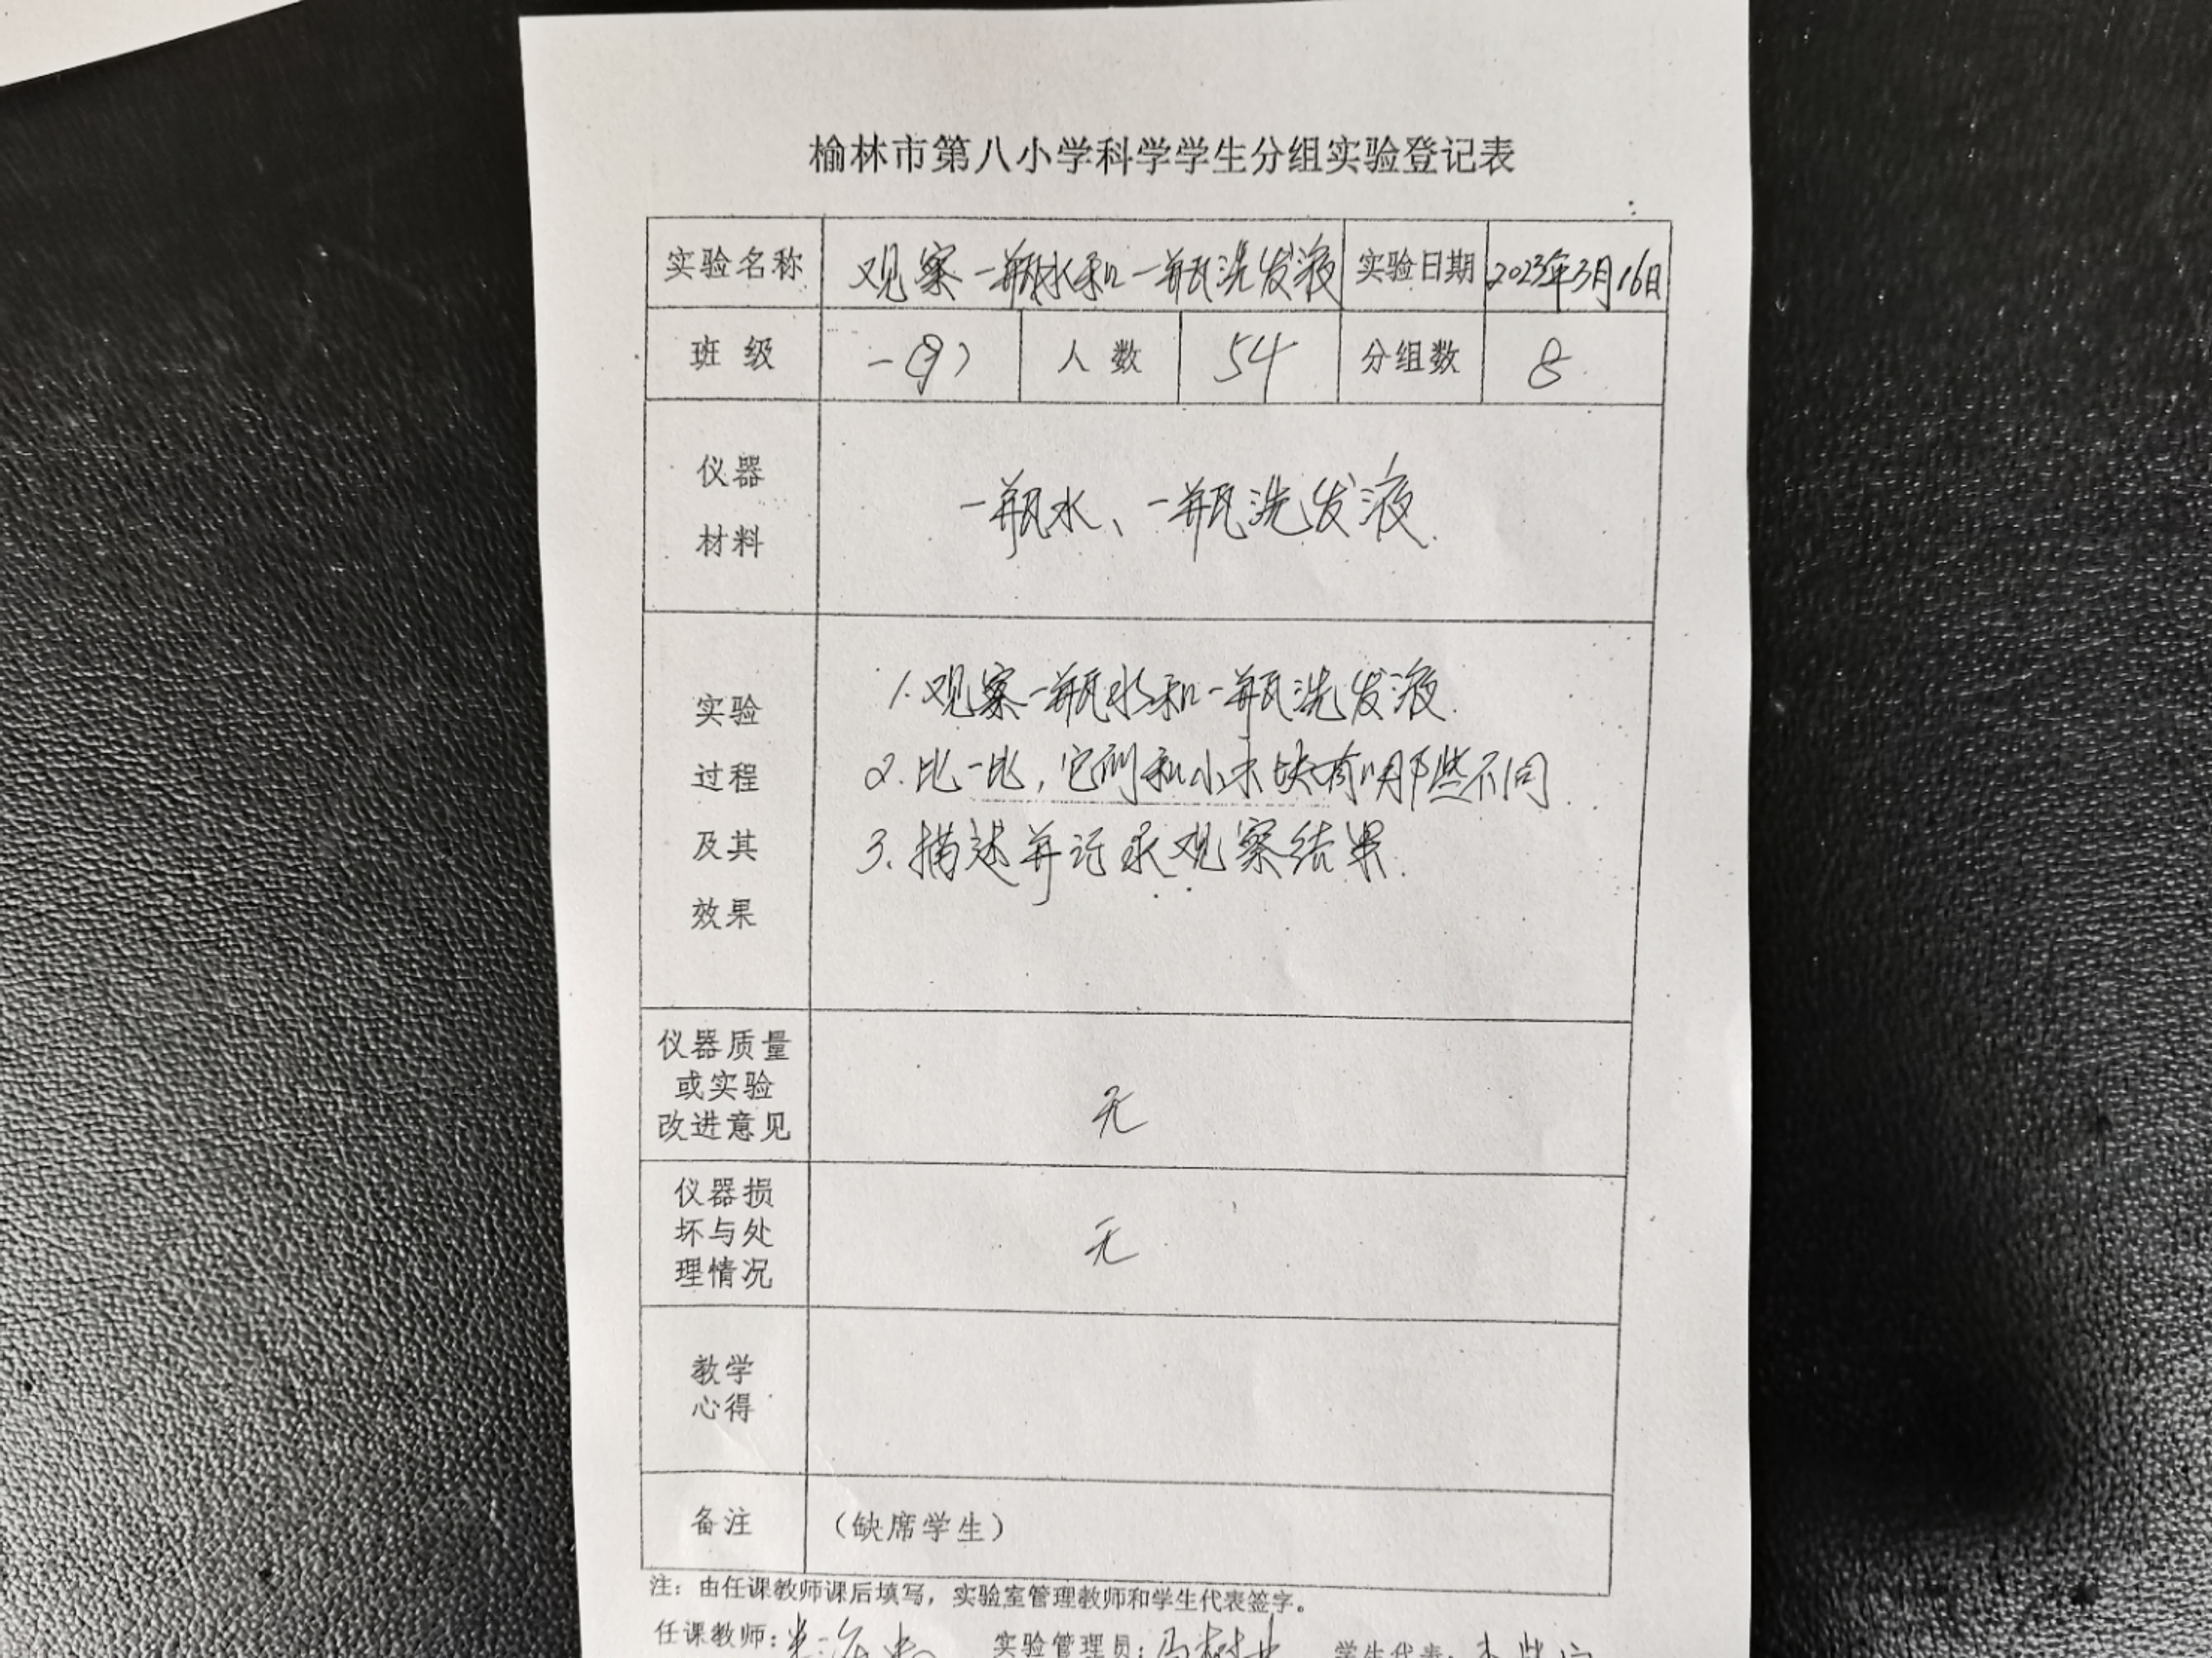 榆林市第八小学科学学生分组实验登记表
实验名称 观察一瓶水和一瓶洗发液 实验日期 2023年3月16日
班 级 一(9) 人 数 54 分组数 8
仪器
材料
一瓶水、一瓶洗发液.
实验
过程
及其
效果
1.观察一瓶水和一瓶洗发液.
2.比一比,它们和小木块有哪些不同.
3.描述并记录观察结果.
仪器质量
或实验
改进意见
无
仪器损
坏与处
理情况
无
教学
心得
备注 (缺席学生)
注:由任课教师课后填写,实验室管理教师和学生代表签字。
任课教师: 实验管理员: 学生代表: